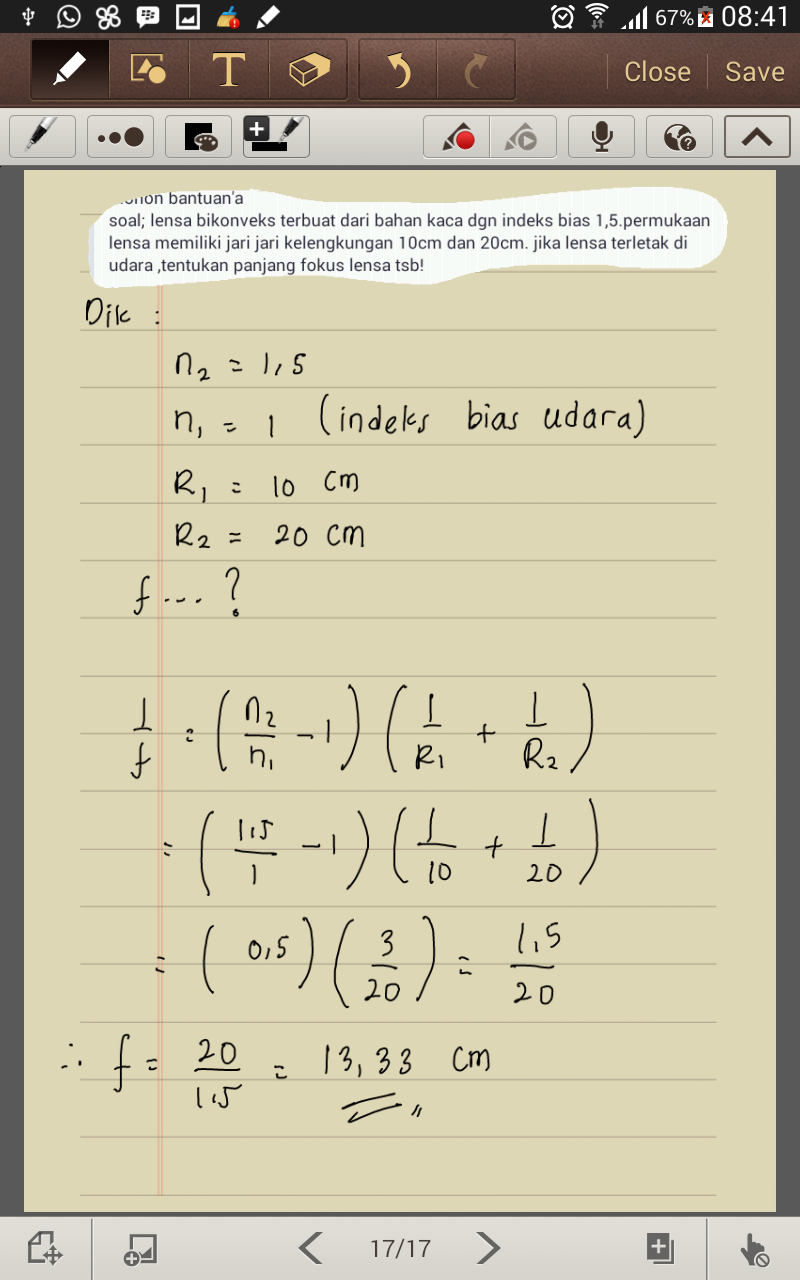 67% 08:41
T Close Save
bantuan'a
soal; lensa bikonveks terbuat dari bahan kaca dgn indeks bias 1,5.permukaan
lensa memiliki jari jari kelengkungan 10cm dan 20cm. jika lensa terletak di
udara ,tentukan panjang fokus lensa tsb!
Dik :
n₂ = 1,5
n₁ = 1 (indeks bias udara)
R₁ = 10 cm
R₂ = 20 cm
f ... ?
1/f = (n₂/n₁ - 1) (1/R₁ + 1/R₂)
= (1.5/1 - 1) (1/10 + 1/20)
= (0,5) (3/20) = 1,5/20
∴ f = 20/1.5 = 13,33 cm
17/17